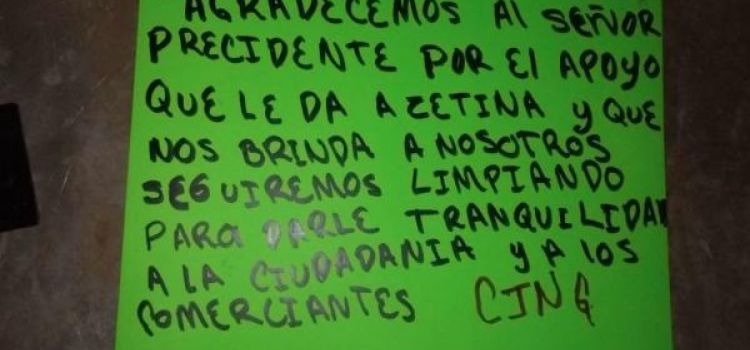 AGRADECEMOS Al SEÑOR
PRECIDENTE POR El APOYO
QUE LE DA A ZETINA y QUE
NOS BRINDA A NOSOTROS
SEGUIREMOS LIMPIANDO
PARA DARLE TRANQUILIDAD
A LA CIUDADANIA y A lOS
COMERCIANTES CJNG